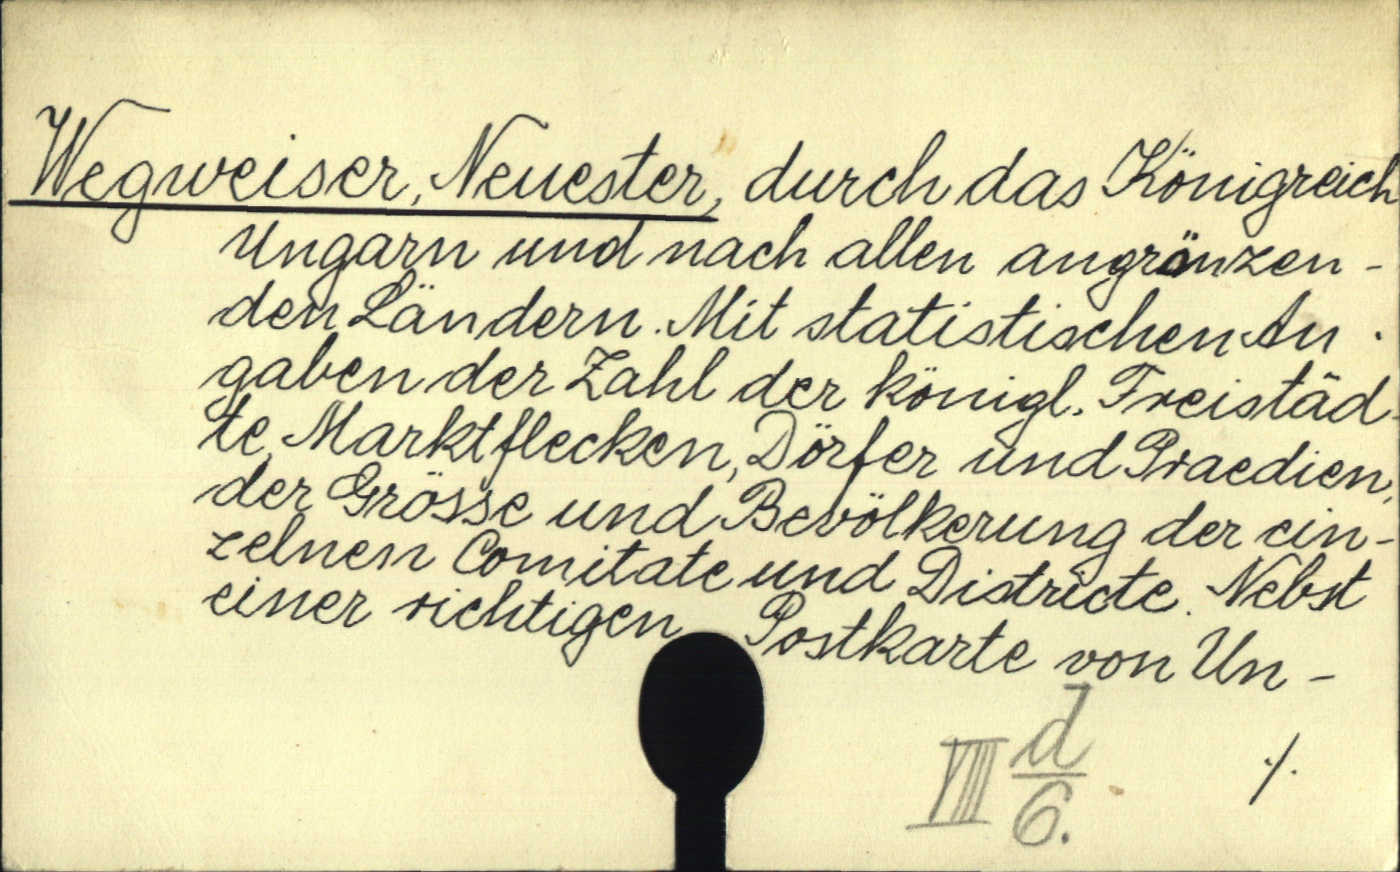 Wegweiser, Neuester, durch das Königreich
Ungarn und nach allen angränzen-
den Ländern. Mit statistischen An-
gaben der Zahl der königl. Freistäd-
te, Marktflecken, Dörfer und Praedien,
der Grösse und Bevölkerung der ein-
zelnen Comitate und Districte. Nebst
einer richtigen Postkarte von Un-
VIII d/6.
./.